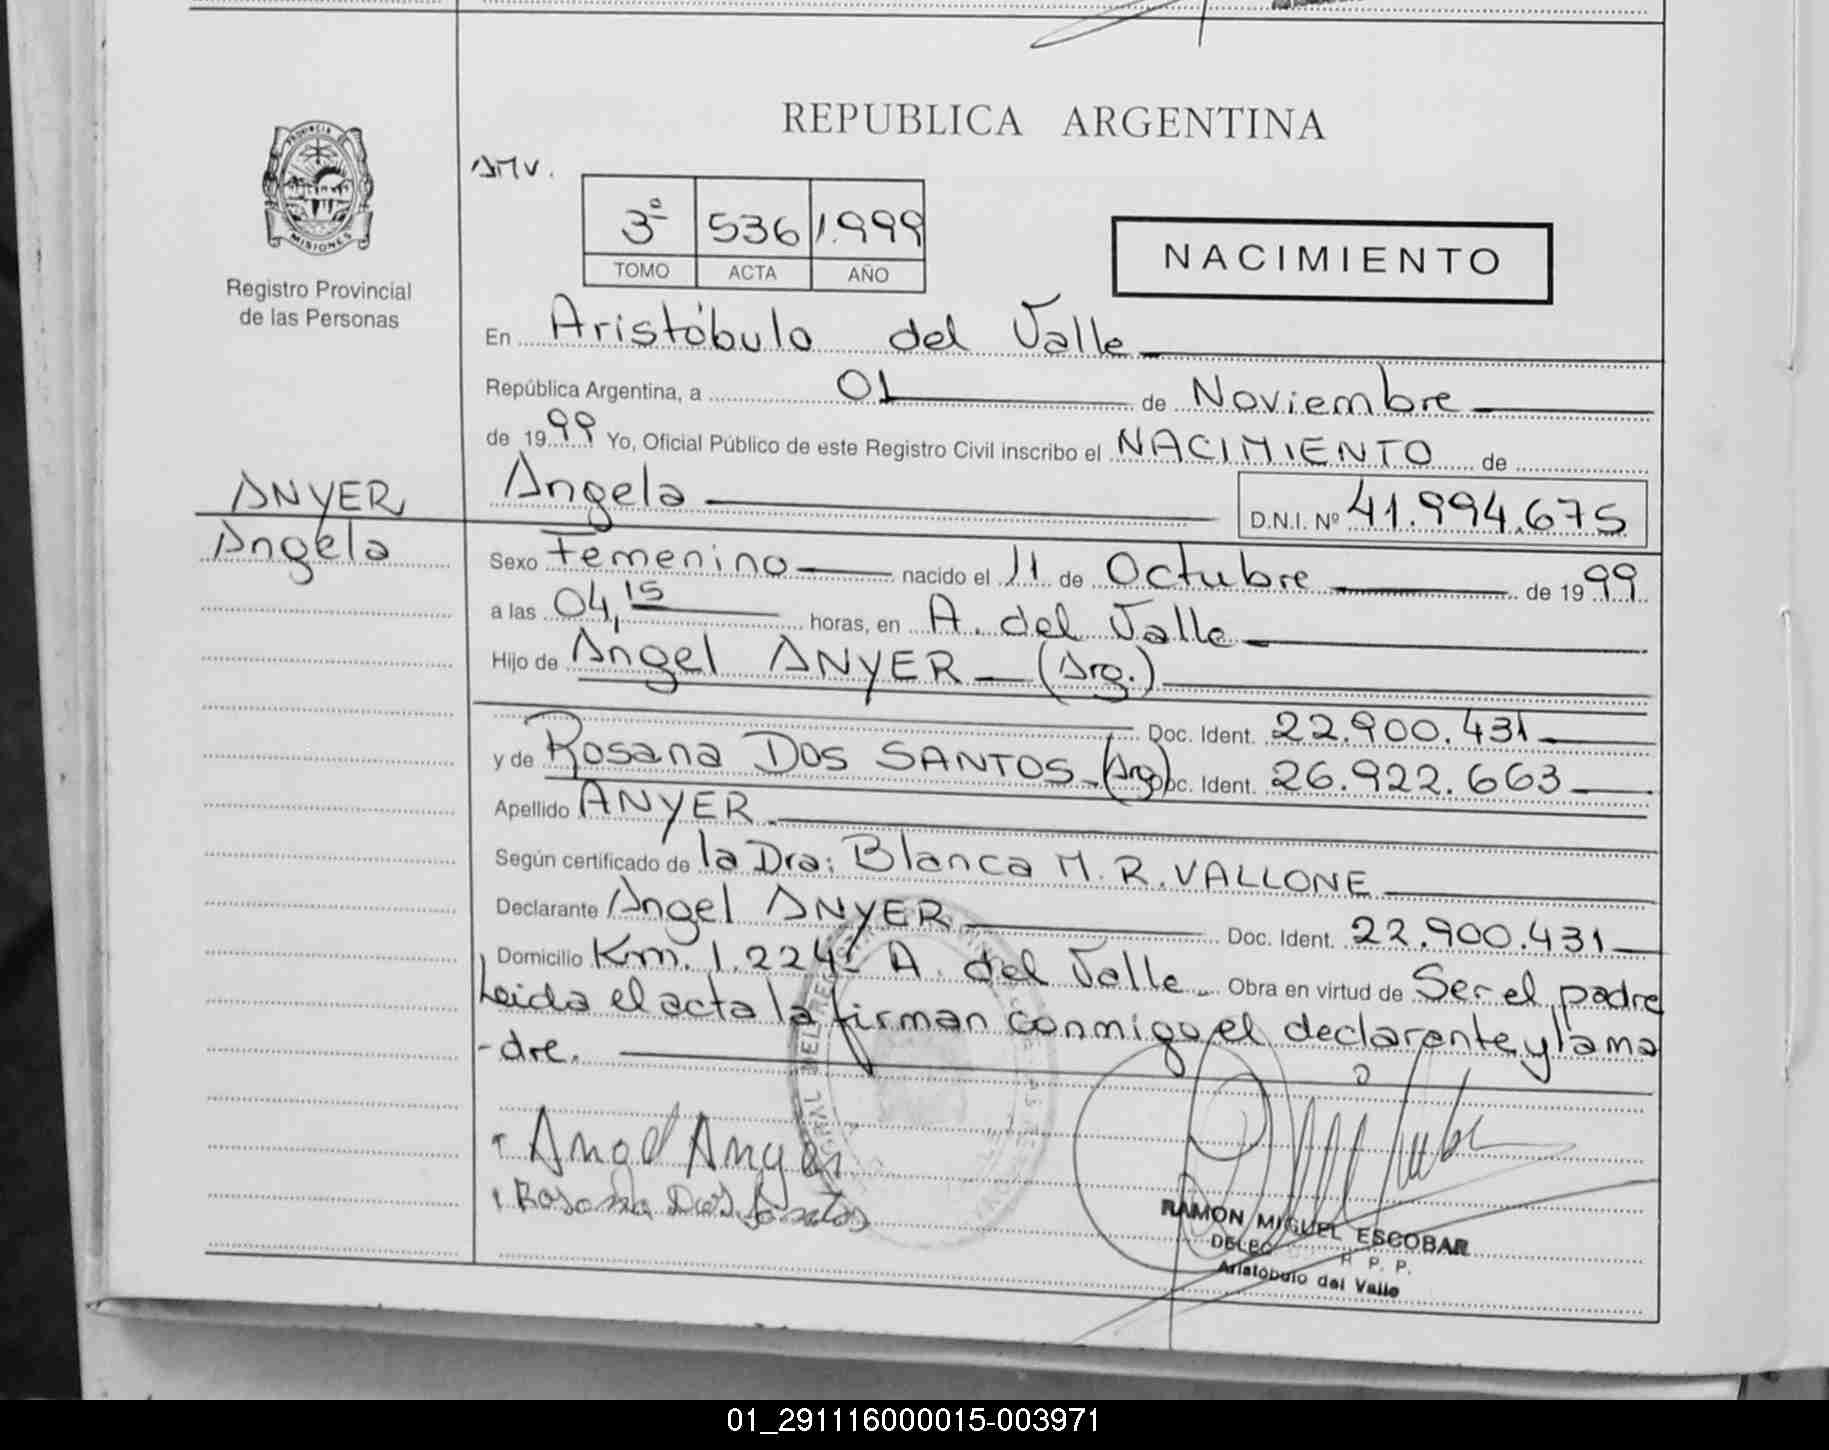 REPUBLICA ARGENTINA
PROVINCIA DE
MISIONES
Registro Provincial
de las Personas
3º 536 1.999
TOMO ACTA AÑO
NACIMIENTO
En Aristóbulo del Valle
República Argentina, a 01 de Noviembre
de 1999 Yo, Oficial Público de este Registro Civil inscribo el NACIMIENTO de
ANYER
Angela
Angela D.N.I. Nº 41.994.675
Sexo Femenino nacido el 11 de Octubre de 1999
a las 04,15 horas, en A. del Valle
Hijo de Angel ANYER (Arg.)
Doc. Ident. 22.900.431
y de Rosana DOS SANTOS (Arg) Doc. Ident. 26.922.663
Apellido ANYER
Según certificado de la Dra: Blanca M. R. VALLONE
Declarante Angel ANYER Doc. Ident. 22.900.431
Domicilio Km. 1.224 A. del Valle Obra en virtud de Ser el padre
Leida el acta la firman conmigo el declarante y la ma
-dre.
Angel Anyer
Rosana Dos Santos
RAMON MIGUEL ESCOBAR
R. P. P.
Aristobulo del Valle
01_291116000015-003971